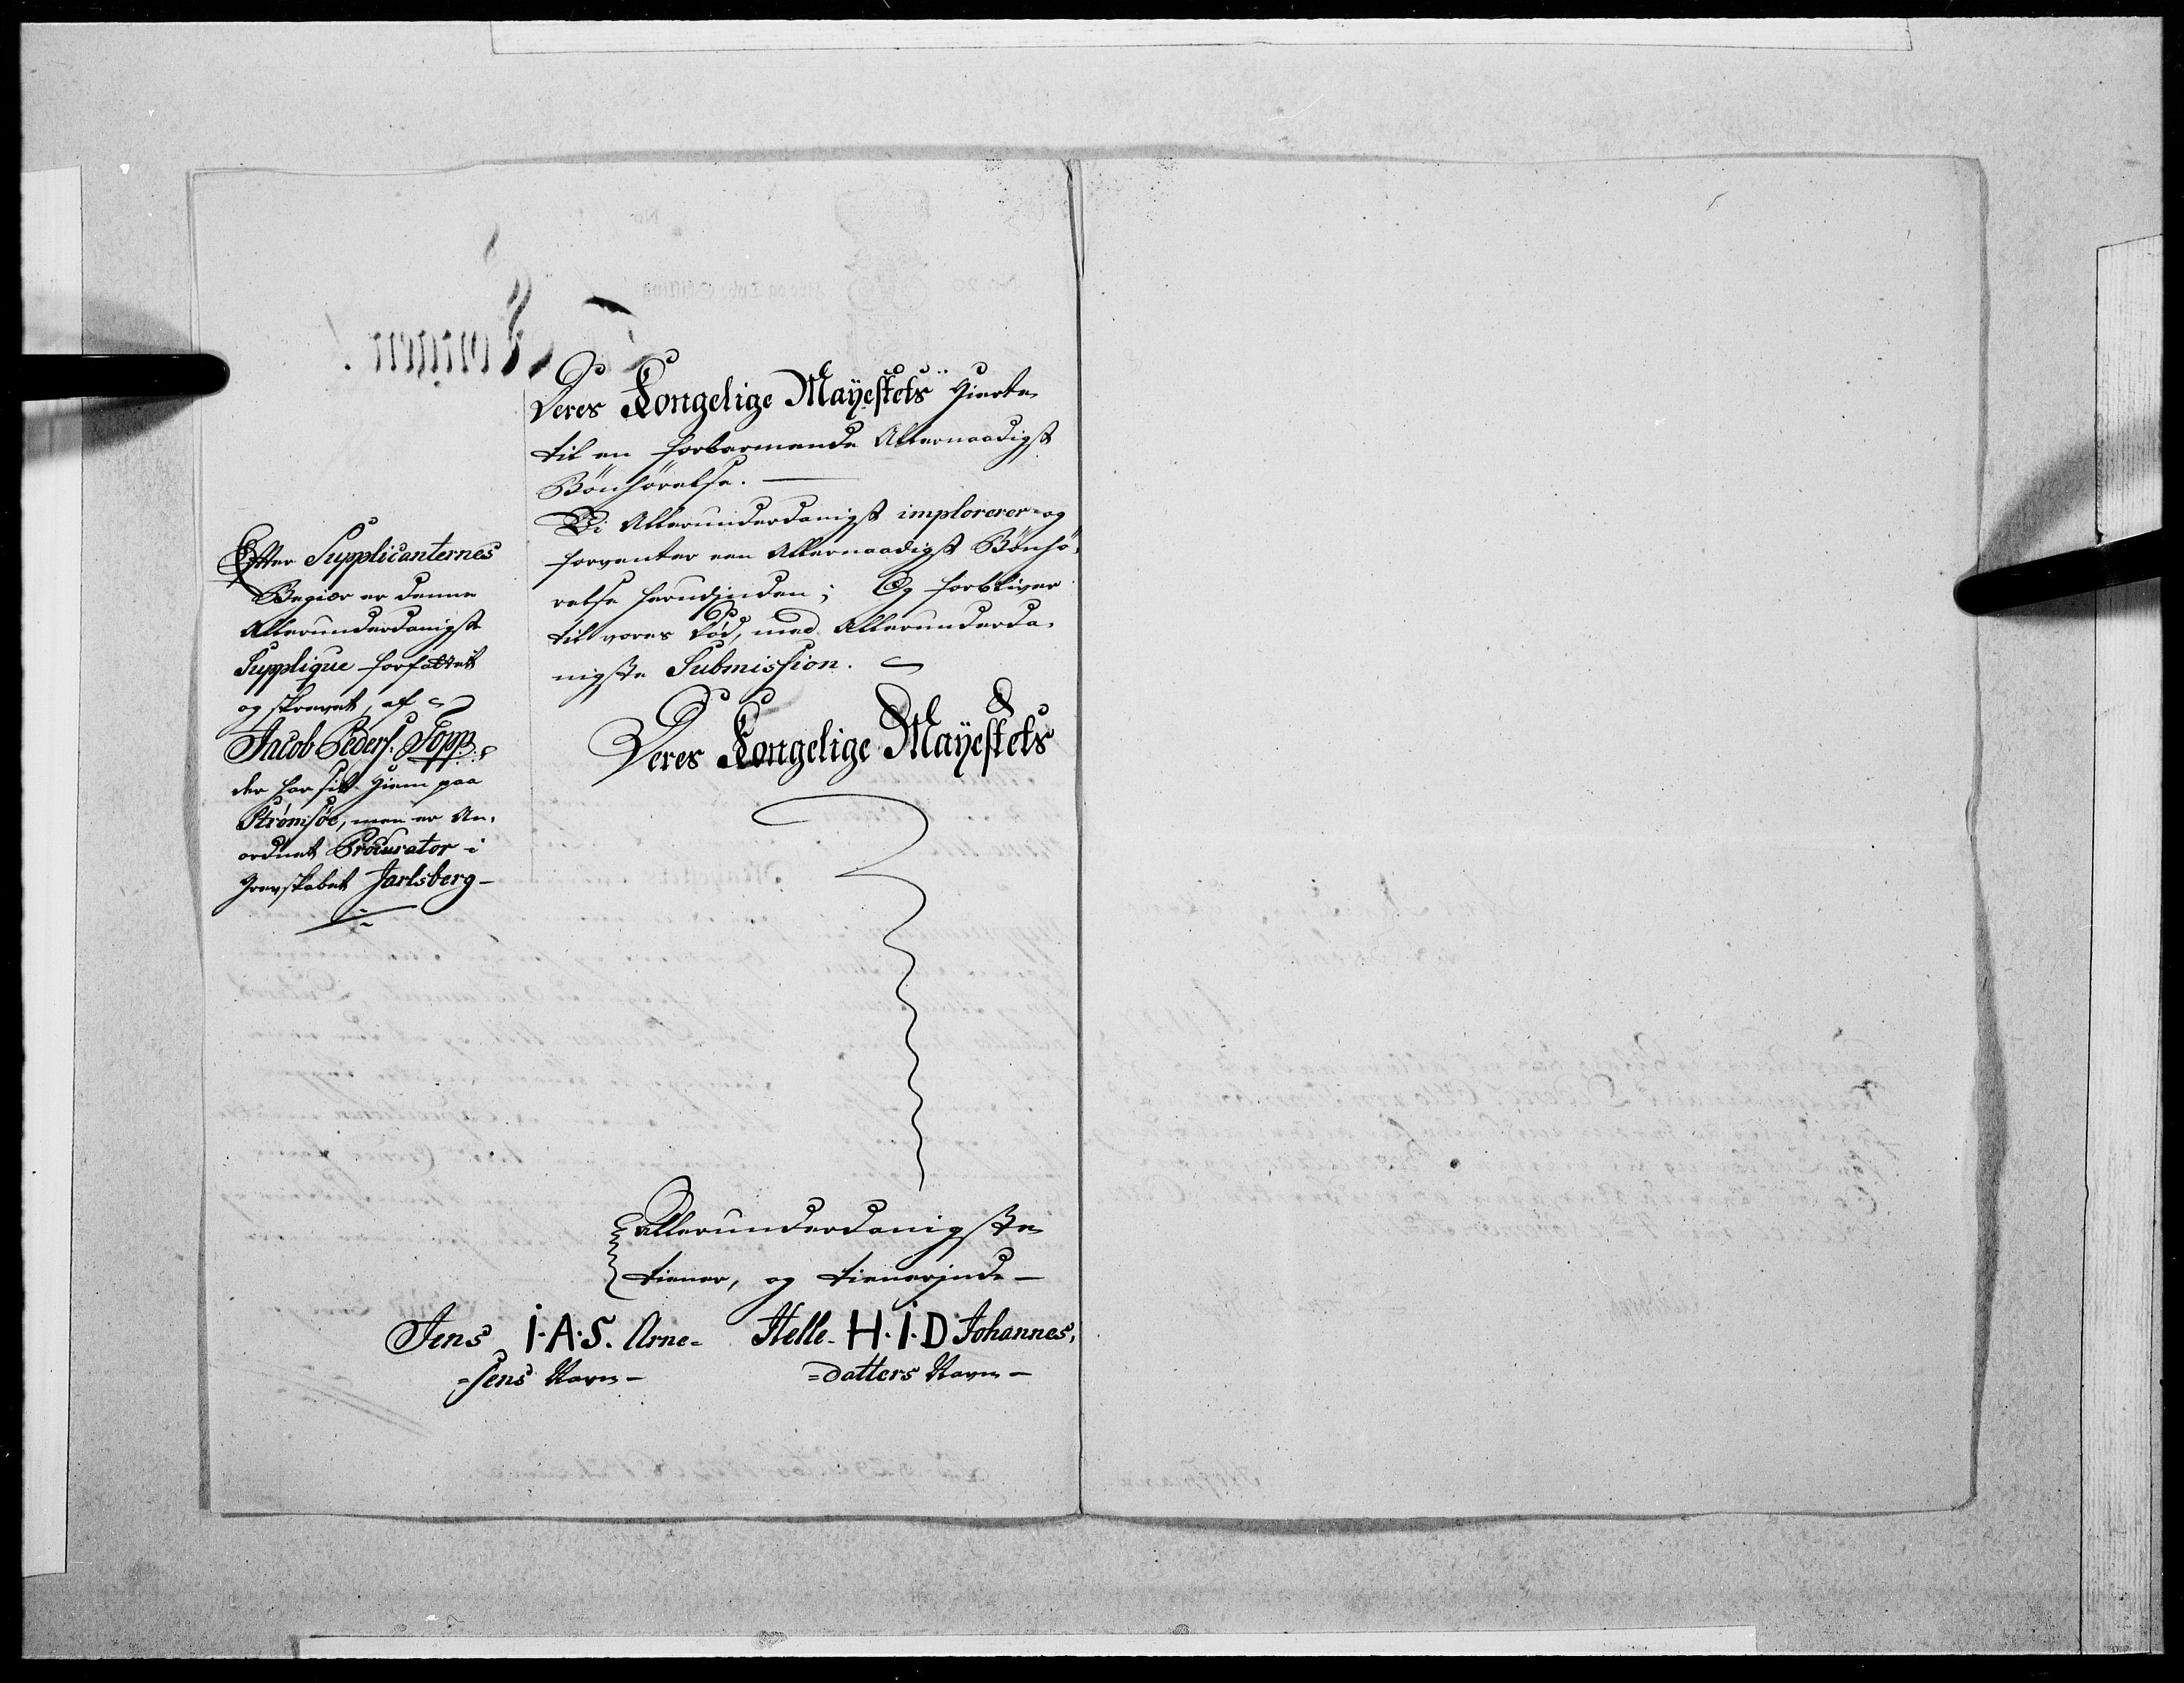 Deres Kongelige Mayestets Hierte
til en forbarmende Allernaadigst
Bönhörelse. —
Vi Allerunderdanigst implorerer og
forventer een Allernaadigst Bönhö-
relse herudjnden; Og forbliver
til vores Död, med Allerunderda-
nigste Submission.
Deres Kongelige Mayestets
Efter Supplicanternes
Begiær er denne
Allerunderdanigste
Supplique forfattet
og skrevet, af
Jacob Peders. Sopp
der har sit Hiem paa
Strömsöe, men er An-
ordnet Procurator i
Grevskabet Jarlsberg -
Allerunderdanigste
tiener, og tienerjnde -
Jens I·A·S. Arne- Helle H·I·D Johannes-
=sens Navn - =datters Navn -